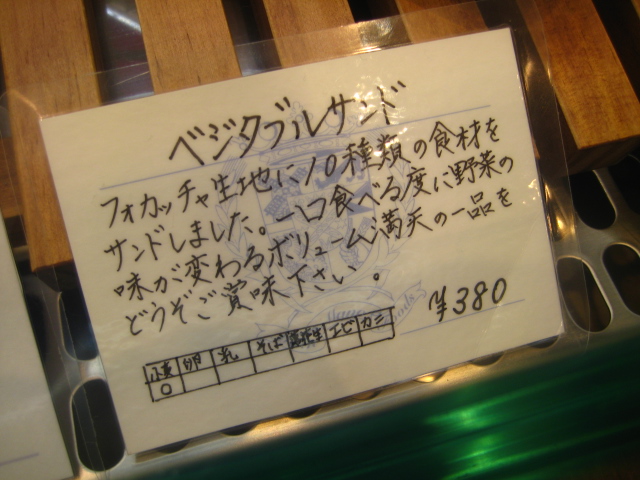 ベジタブルサンド
フォカッチャ生地に10種類の食材を
サンドしました。一口食べる度に野菜の
味が変わるボリューム満天の一品を
どうぞご賞味下さい。
¥380
小麦 卵 乳 そば 落花生 エビ カニ
○